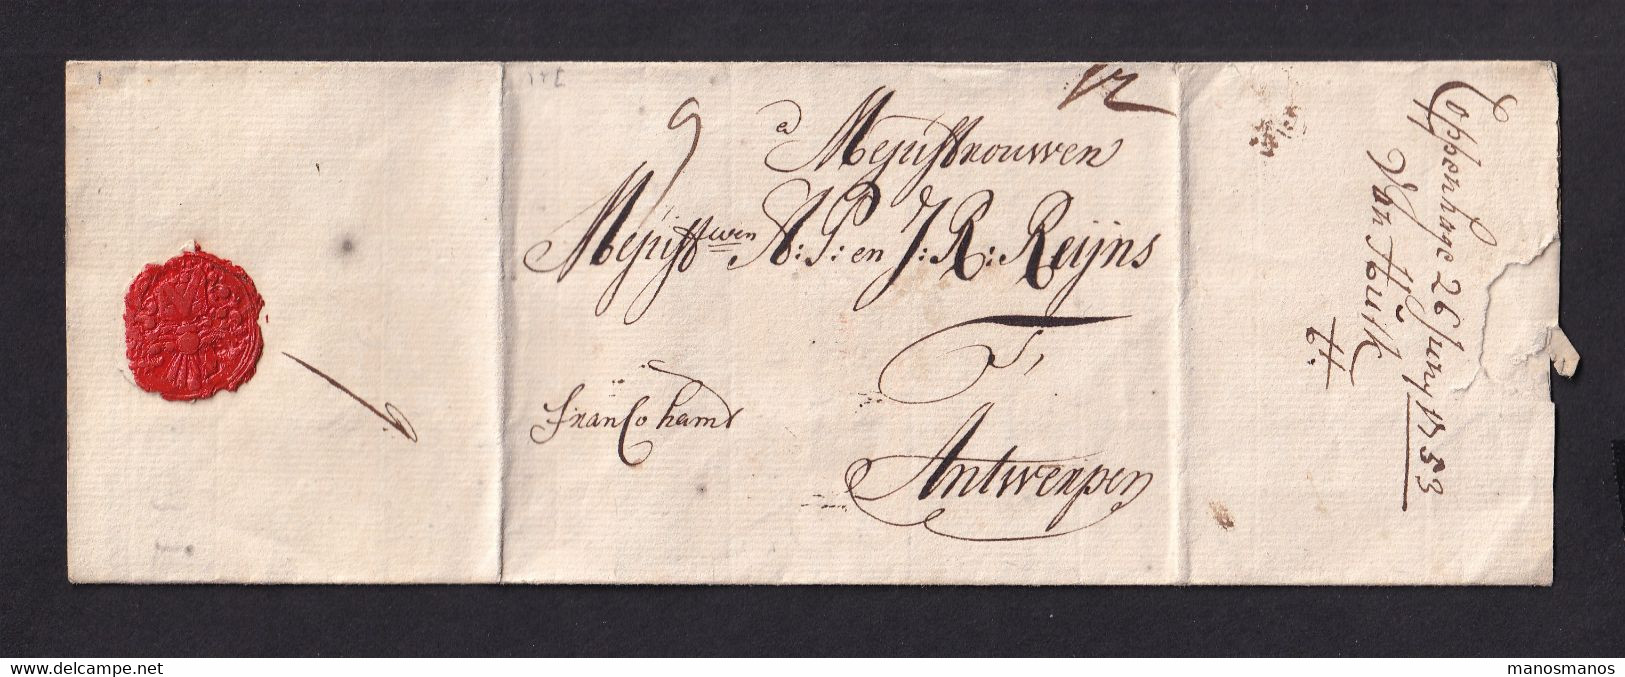 a Mejuffrouwen
Mejuff wen A: P: en J: R: Reijns
T,
Antwerpen
franco hamb
Coppenhage 26 Juny 1753
Van
www.delcampe.net
manosmanos